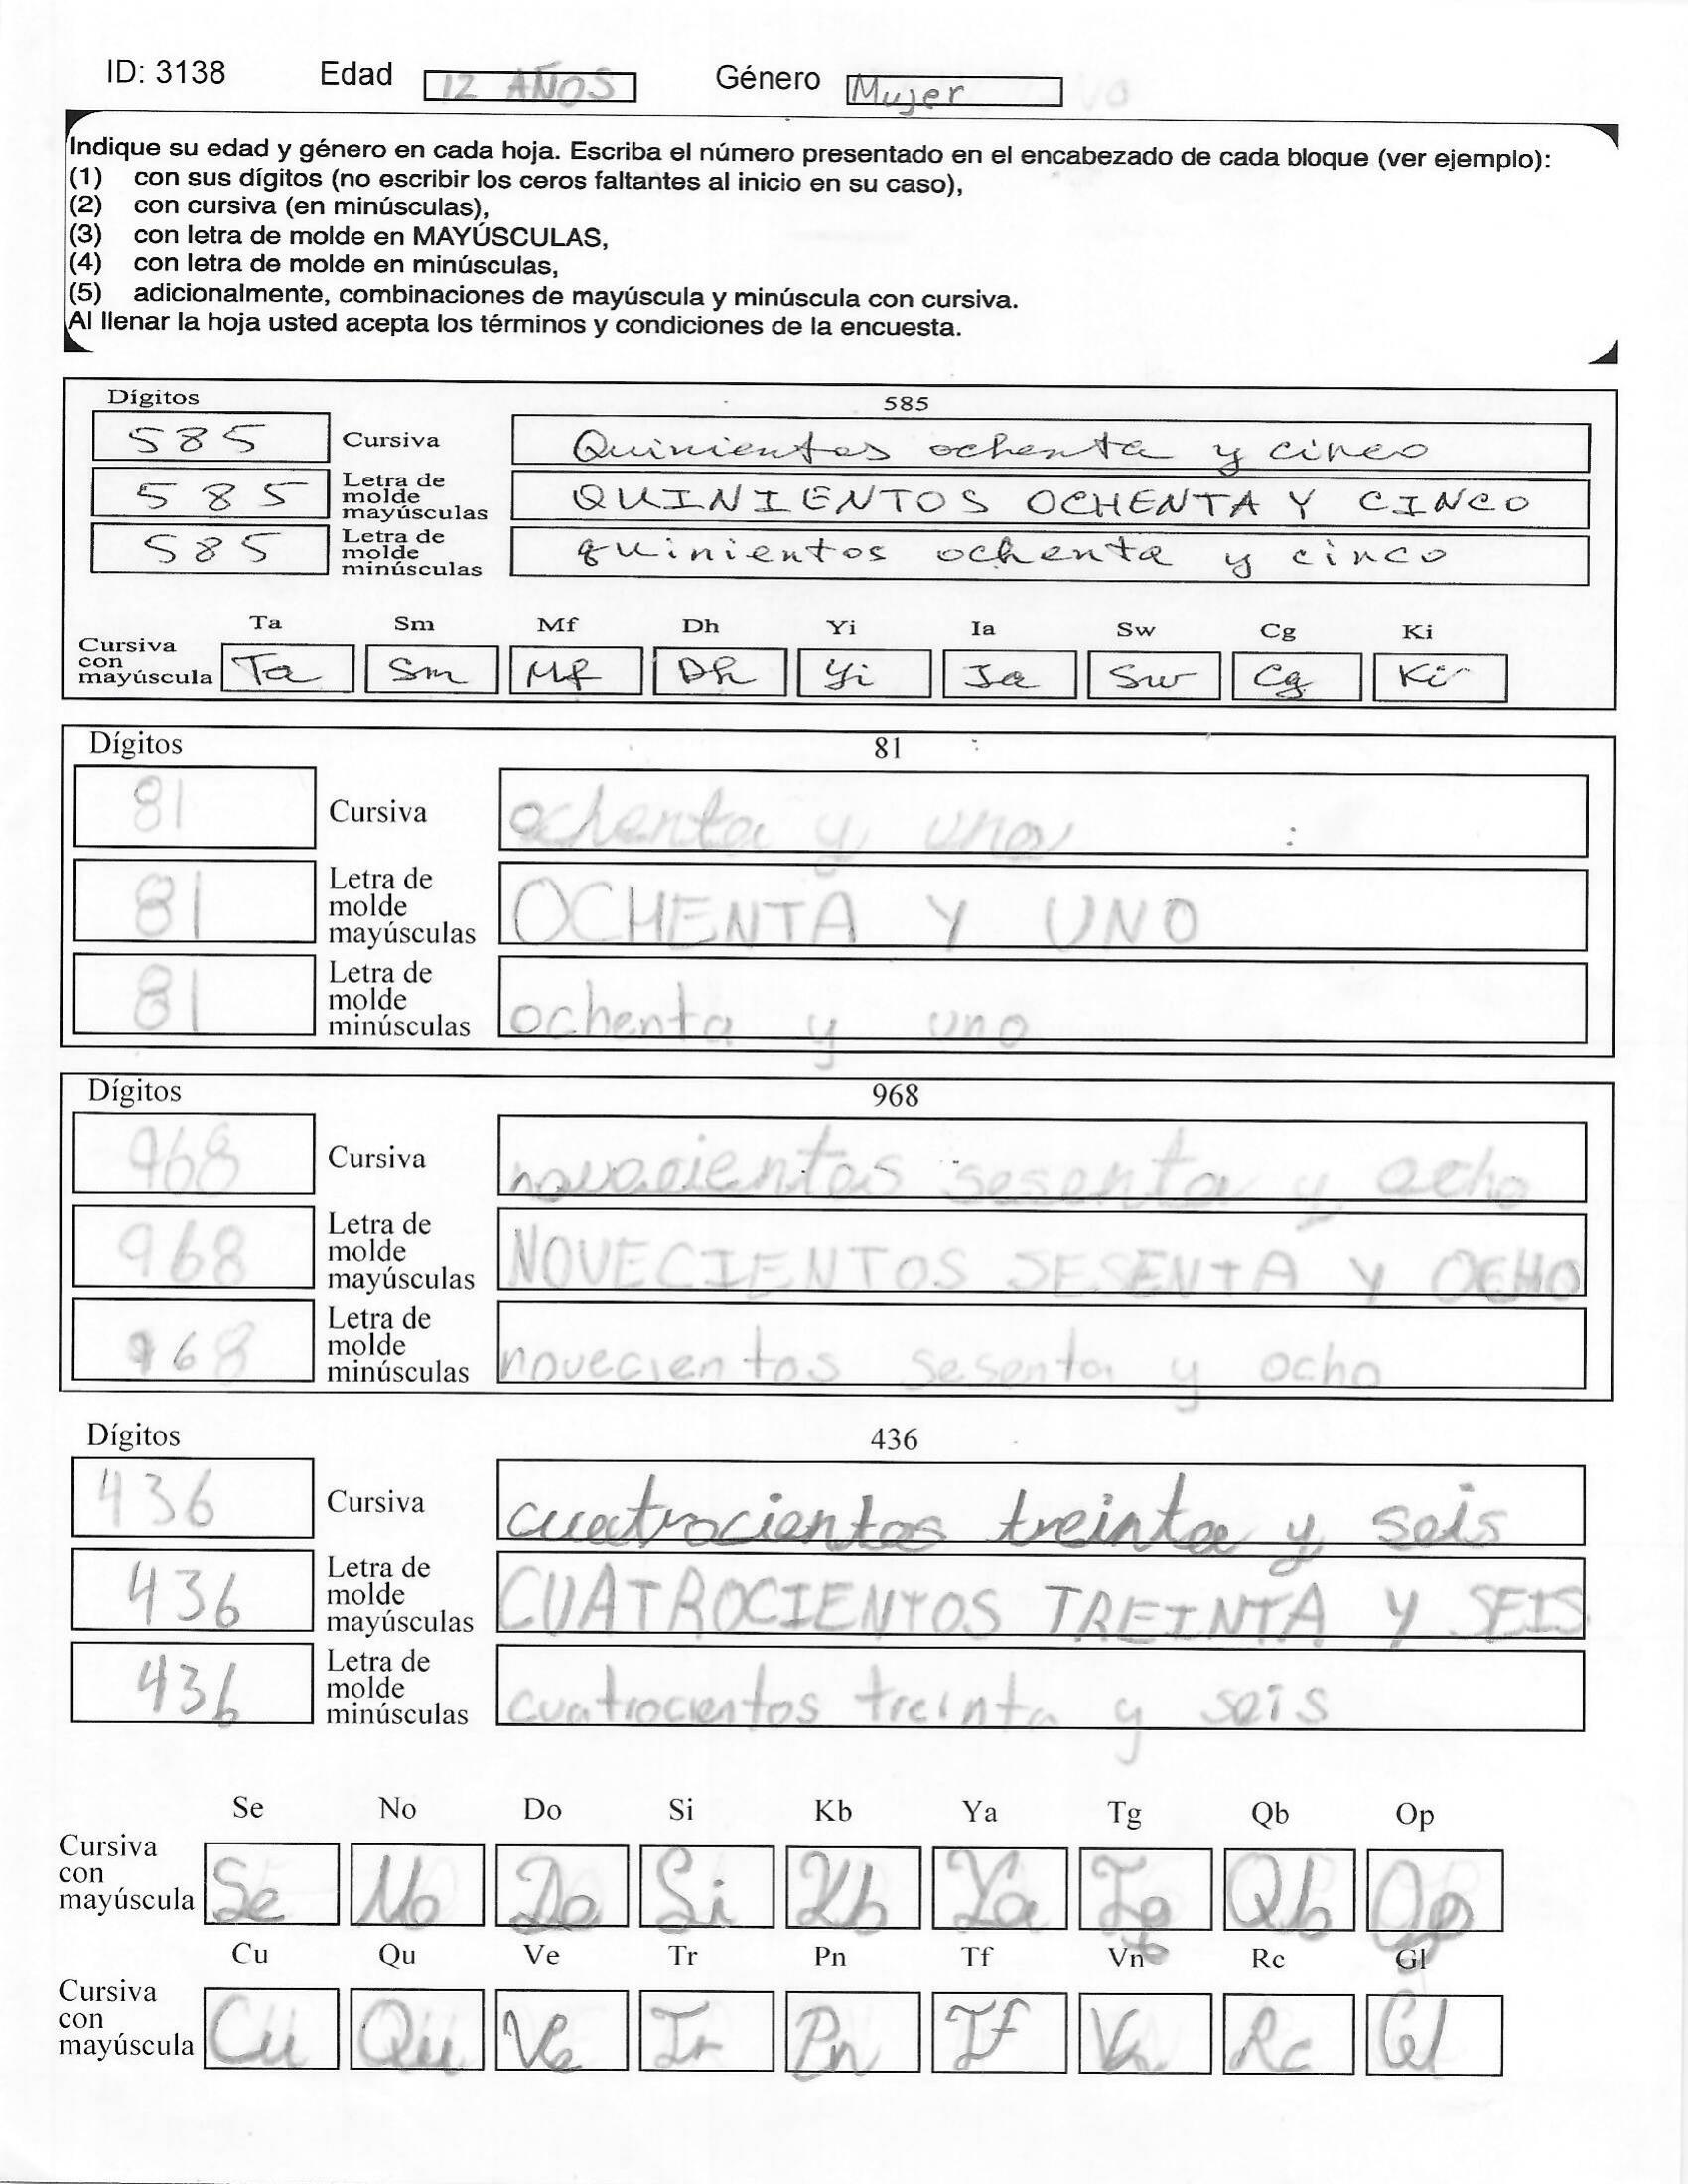 ID: 3138 Edad 12 AÑOS Género Mujer
Indique su edad y género en cada hoja. Escriba el número presentado en el encabezado de cada bloque (ver ejemplo):
(1) con sus dígitos (no escribir los ceros faltantes al inicio en su caso),
(2) con cursiva (en minúsculas),
(3) con letra de molde en MAYÚSCULAS,
(4) con letra de molde en minúsculas,
(5) adicionalmente, combinaciones de mayúscula y minúscula con cursiva.
Al llenar la hoja usted acepta los términos y condiciones de la encuesta.
Dígitos 585
585 Cursiva Quinientos ochenta y cinco
585 Letra de molde mayúsculas QUINIENTOS OCHENTA Y CINCO
585 Letra de molde minúsculas quinientos ochenta y cinco
Ta Sm Mf Dh Yi Ia Sw Cg Ki
Cursiva con mayúscula Ta Sm Mf Dh Yi Ia Sw Cg Ki
Dígitos 81
81 Cursiva ochenta y uno
81 Letra de molde mayúsculas OCHENTA Y UNO
81 Letra de molde minúsculas ochenta y uno
Dígitos 968
968 Cursiva novecientos sesenta y ocho
968 Letra de molde mayúsculas NOVECIENTOS SESENTA Y OCHO
968 Letra de molde minúsculas novecientos sesenta y ocho
Dígitos 436
436 Cursiva cuatrocientos treinta y seis
436 Letra de molde mayúsculas CUATROCIENTOS TREINTA Y SEIS
436 Letra de molde minúsculas cuatrocientos treinta y seis
Se No Do Si Kb Ya Tg Qb Op
Cursiva con mayúscula Se No Do Si Kb Ya Tg Qb Op
Cu Qu Ve Tr Pn Tf Vn Rc Gl
Cursiva con mayúscula Cu Qu Ve Tr Pn Tf Vn Rc Gl